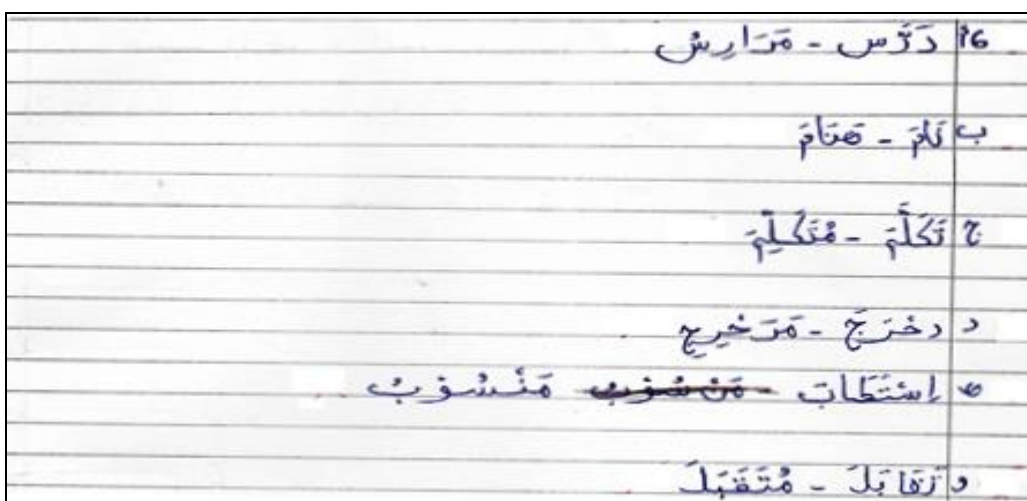 16 دَرَّس - مَدَارِسْ
ب نَامَ - مَنَامَ
ج تَكَلَّمَ - مُتَكَلِّمَ
د دخرَجَ - مَدَخرِجِ
ه اِسْتَطَابَ مَنْسُوْبُ مَنْسُوْبُ
و تَقَابَلَ - مُتَقَبَلَ